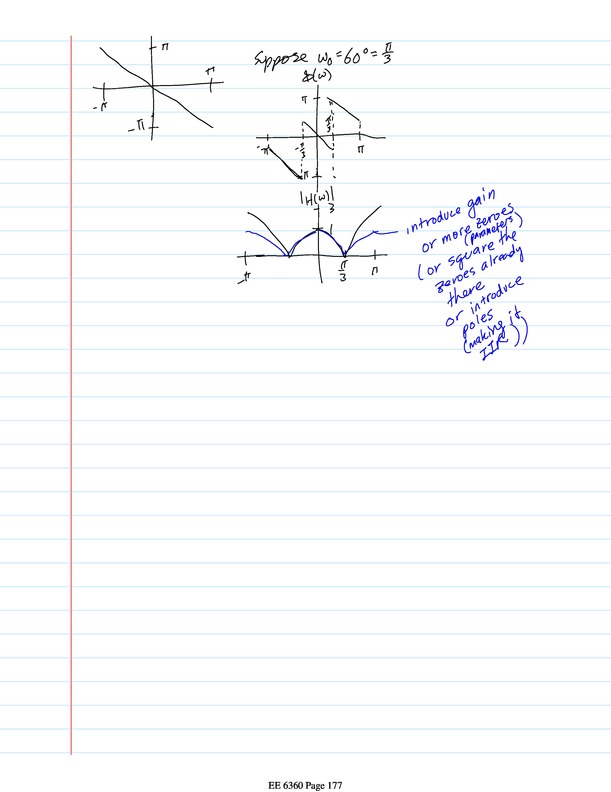 π
π
-π
-π
suppose ω₀ = 60° = π/3
∡(ω)
π
π/3
-π
-π/3
π
-π
|H(ω)|
3
1
-π
π/3
π
introduce gain
or more zeroes
(parameters)
(or square the
zeroes already
there
or introduce
poles
(making it
IIR))
EE 6360 Page 177